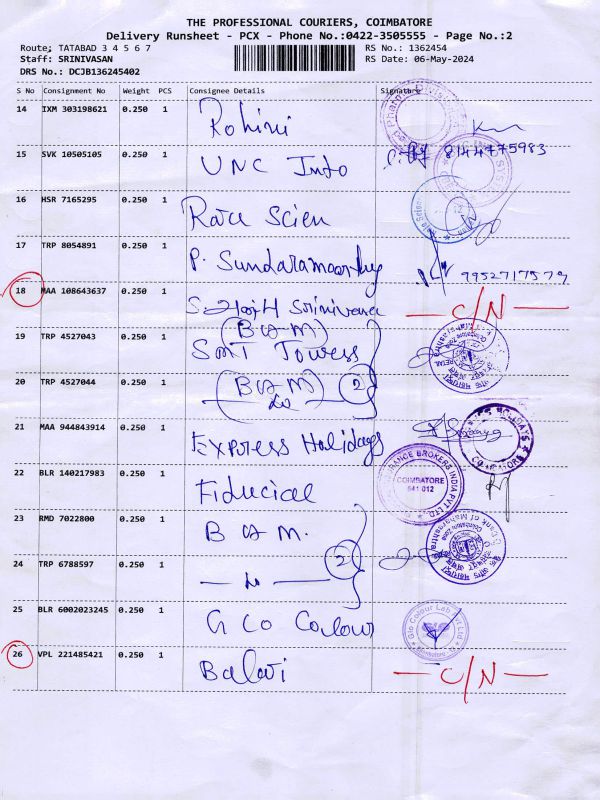 THE PROFESSIONAL COURIERS, COIMBATORE
Delivery Runsheet - PCX - Phone No.:0422-3505555 - Page No.:2
Route: TATABAD 3 4 5 6 7 RS No.: 1362454
Staff: SRINIVASAN RS Date: 06-May-2024
DRS No.: DCJB136245402
S No Consignment No Weight PCS Consignee Details Signature
14 IXM 303198621 0.250 1 Rohini
15 SVK 10505105 0.250 1 UNC Info 8144775983
16 HSR 7165295 0.250 1 Race Scien
17 TRP 8054891 0.250 1 P. Sundaramoorthy 9952717579
18 MAA 108643637 0.250 1 Srinivasa C/N
19 TRP 4527043 0.250 1 (B of M) SMT Towers
20 TRP 4527044 0.250 1 (B of M) 2
21 MAA 944843914 0.250 1 Express Holidays
22 BLR 140217983 0.250 1 Fiducial
INSURANCE BROKERS INDIA PVT LTD
COIMBATORE
641 012
23 RMD 7022800 0.250 1 B of M.
Bank of Maharashtra
24 TRP 6788597 0.250 1 2
25 BLR 6002023245 0.250 1 GCO Colour
Glo Colour Lab
26 VPL 221485421 0.250 1 Balaji C/N